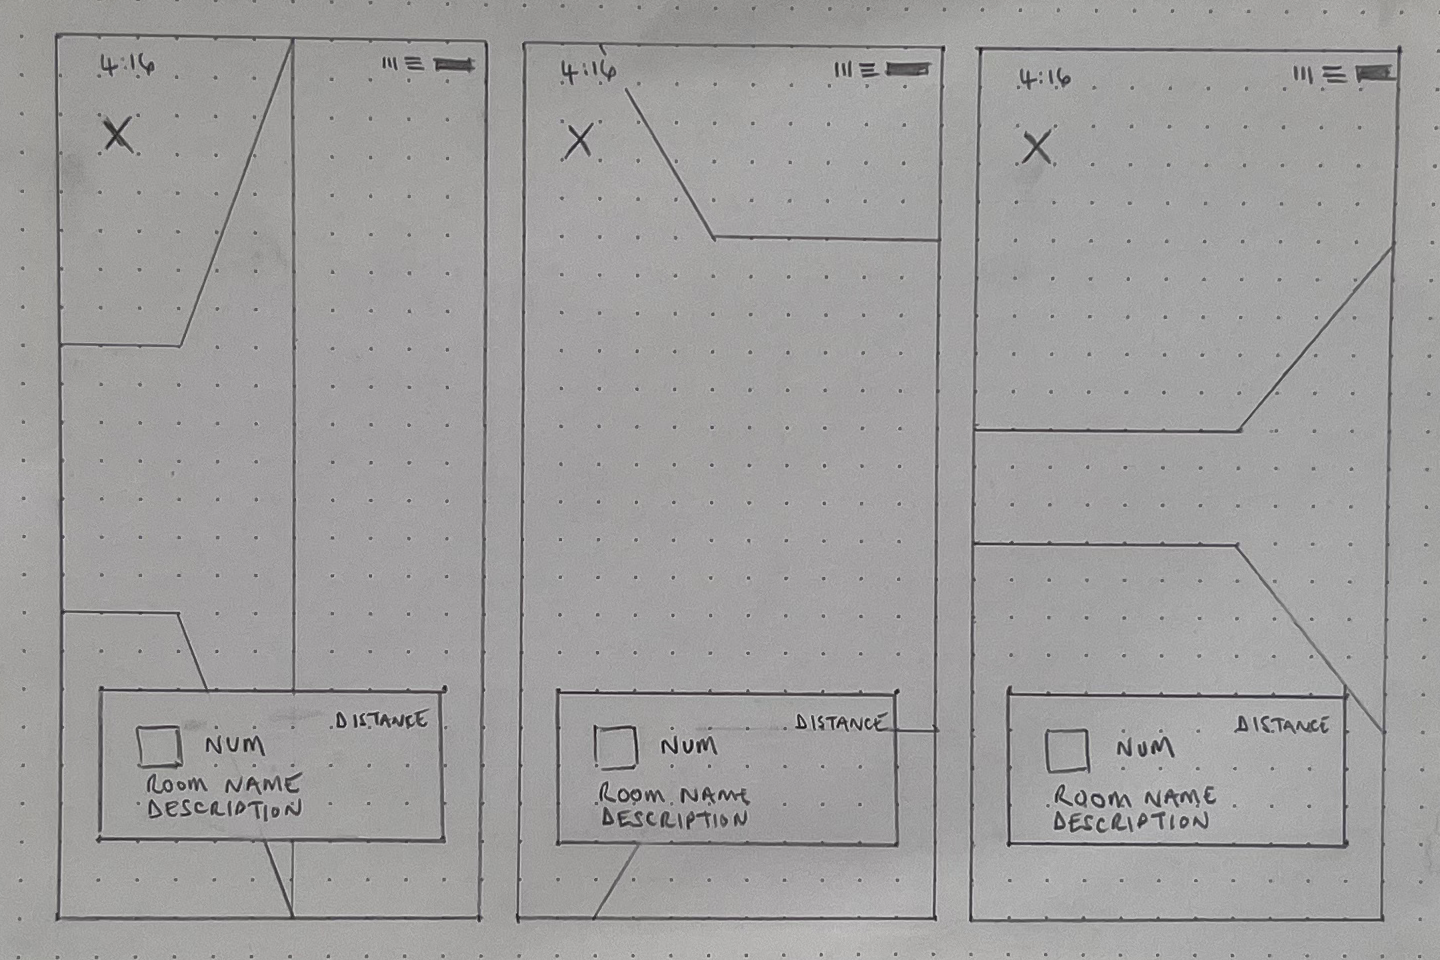 4:16
X
DISTANCE
NUM
ROOM NAME
DESCRIPTION
4:16
X
DISTANCE
NUM
ROOM NAME
DESCRIPTION
4:16
X
DISTANCE
NUM
ROOM NAME
DESCRIPTION